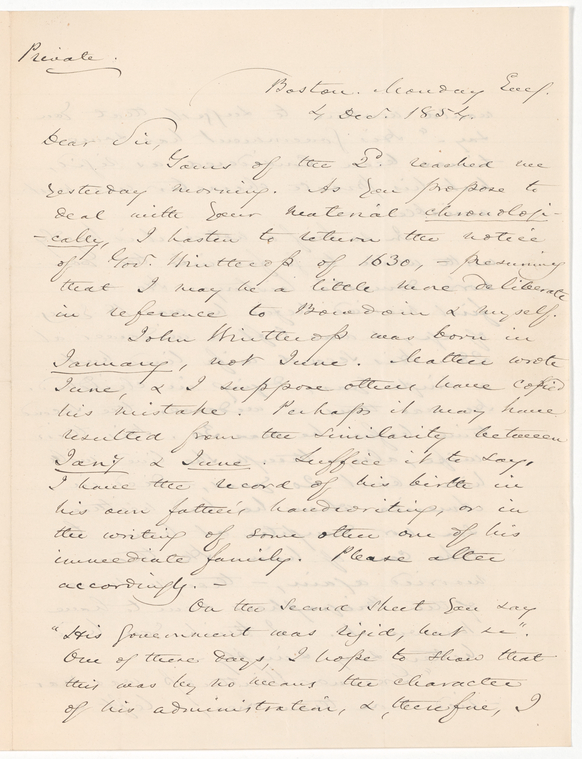 Private.
Boston. Monday Evg.
4 Dec. 1854.
Dear Sir,
Yours of the 2d. reached me
yesterday morning. As you propose to
deal with your material chronologi-
-cally, I hasten to return the notice
of Gov. Winthrop of 1630, – presuming
that I may be a little more deliberate
in reference to Bowdoin & myself.
John Winthrop was born in
January, not June. Mather wrote
June, & I suppose others have copied
his mistake. Perhaps it may have
resulted from the similarity between
Jany & June. Suffice it to say,
I have the record of his birth in
his own father's handwriting, or in
the writing of some other one of his
immediate family. Please alter
accordingly. –
On the second sheet you say
"His government was rigid, but &c".
One of these days, I hope to show that
this was by no means the character
of his administration, &, therefore, I